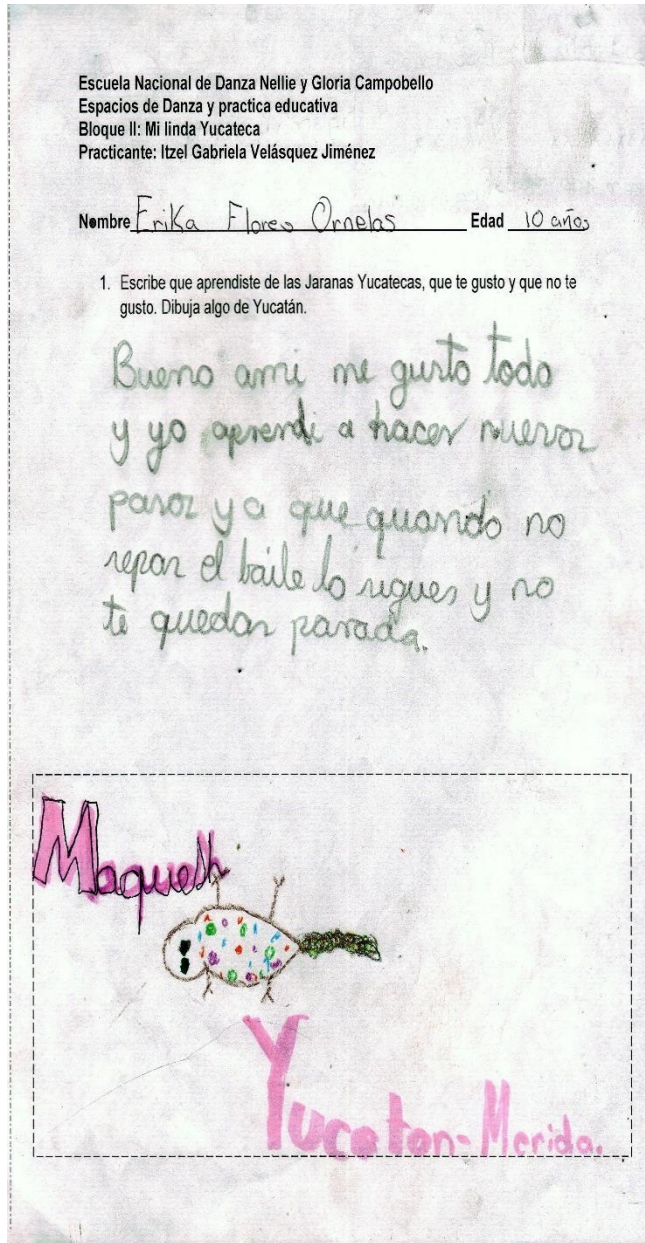 Escuela Nacional de Danza Nellie y Gloria Campobello
Espacios de Danza y practica educativa
Bloque II: Mi linda Yucateca
Practicante: Itzel Gabriela Velásquez Jiménez
Nombre Erika Flores Ornelas Edad 10 años
1. Escribe que aprendiste de las Jaranas Yucatecas, que te gusto y que no te
gusto. Dibuja algo de Yucatán.
Bueno ami me gusto todo
y yo aprendi a hacer nuevos
pasos y a que quando no
sepas el baile lo sigues y no
te quedas parada.
Maquesh
Yucatan-Merida.